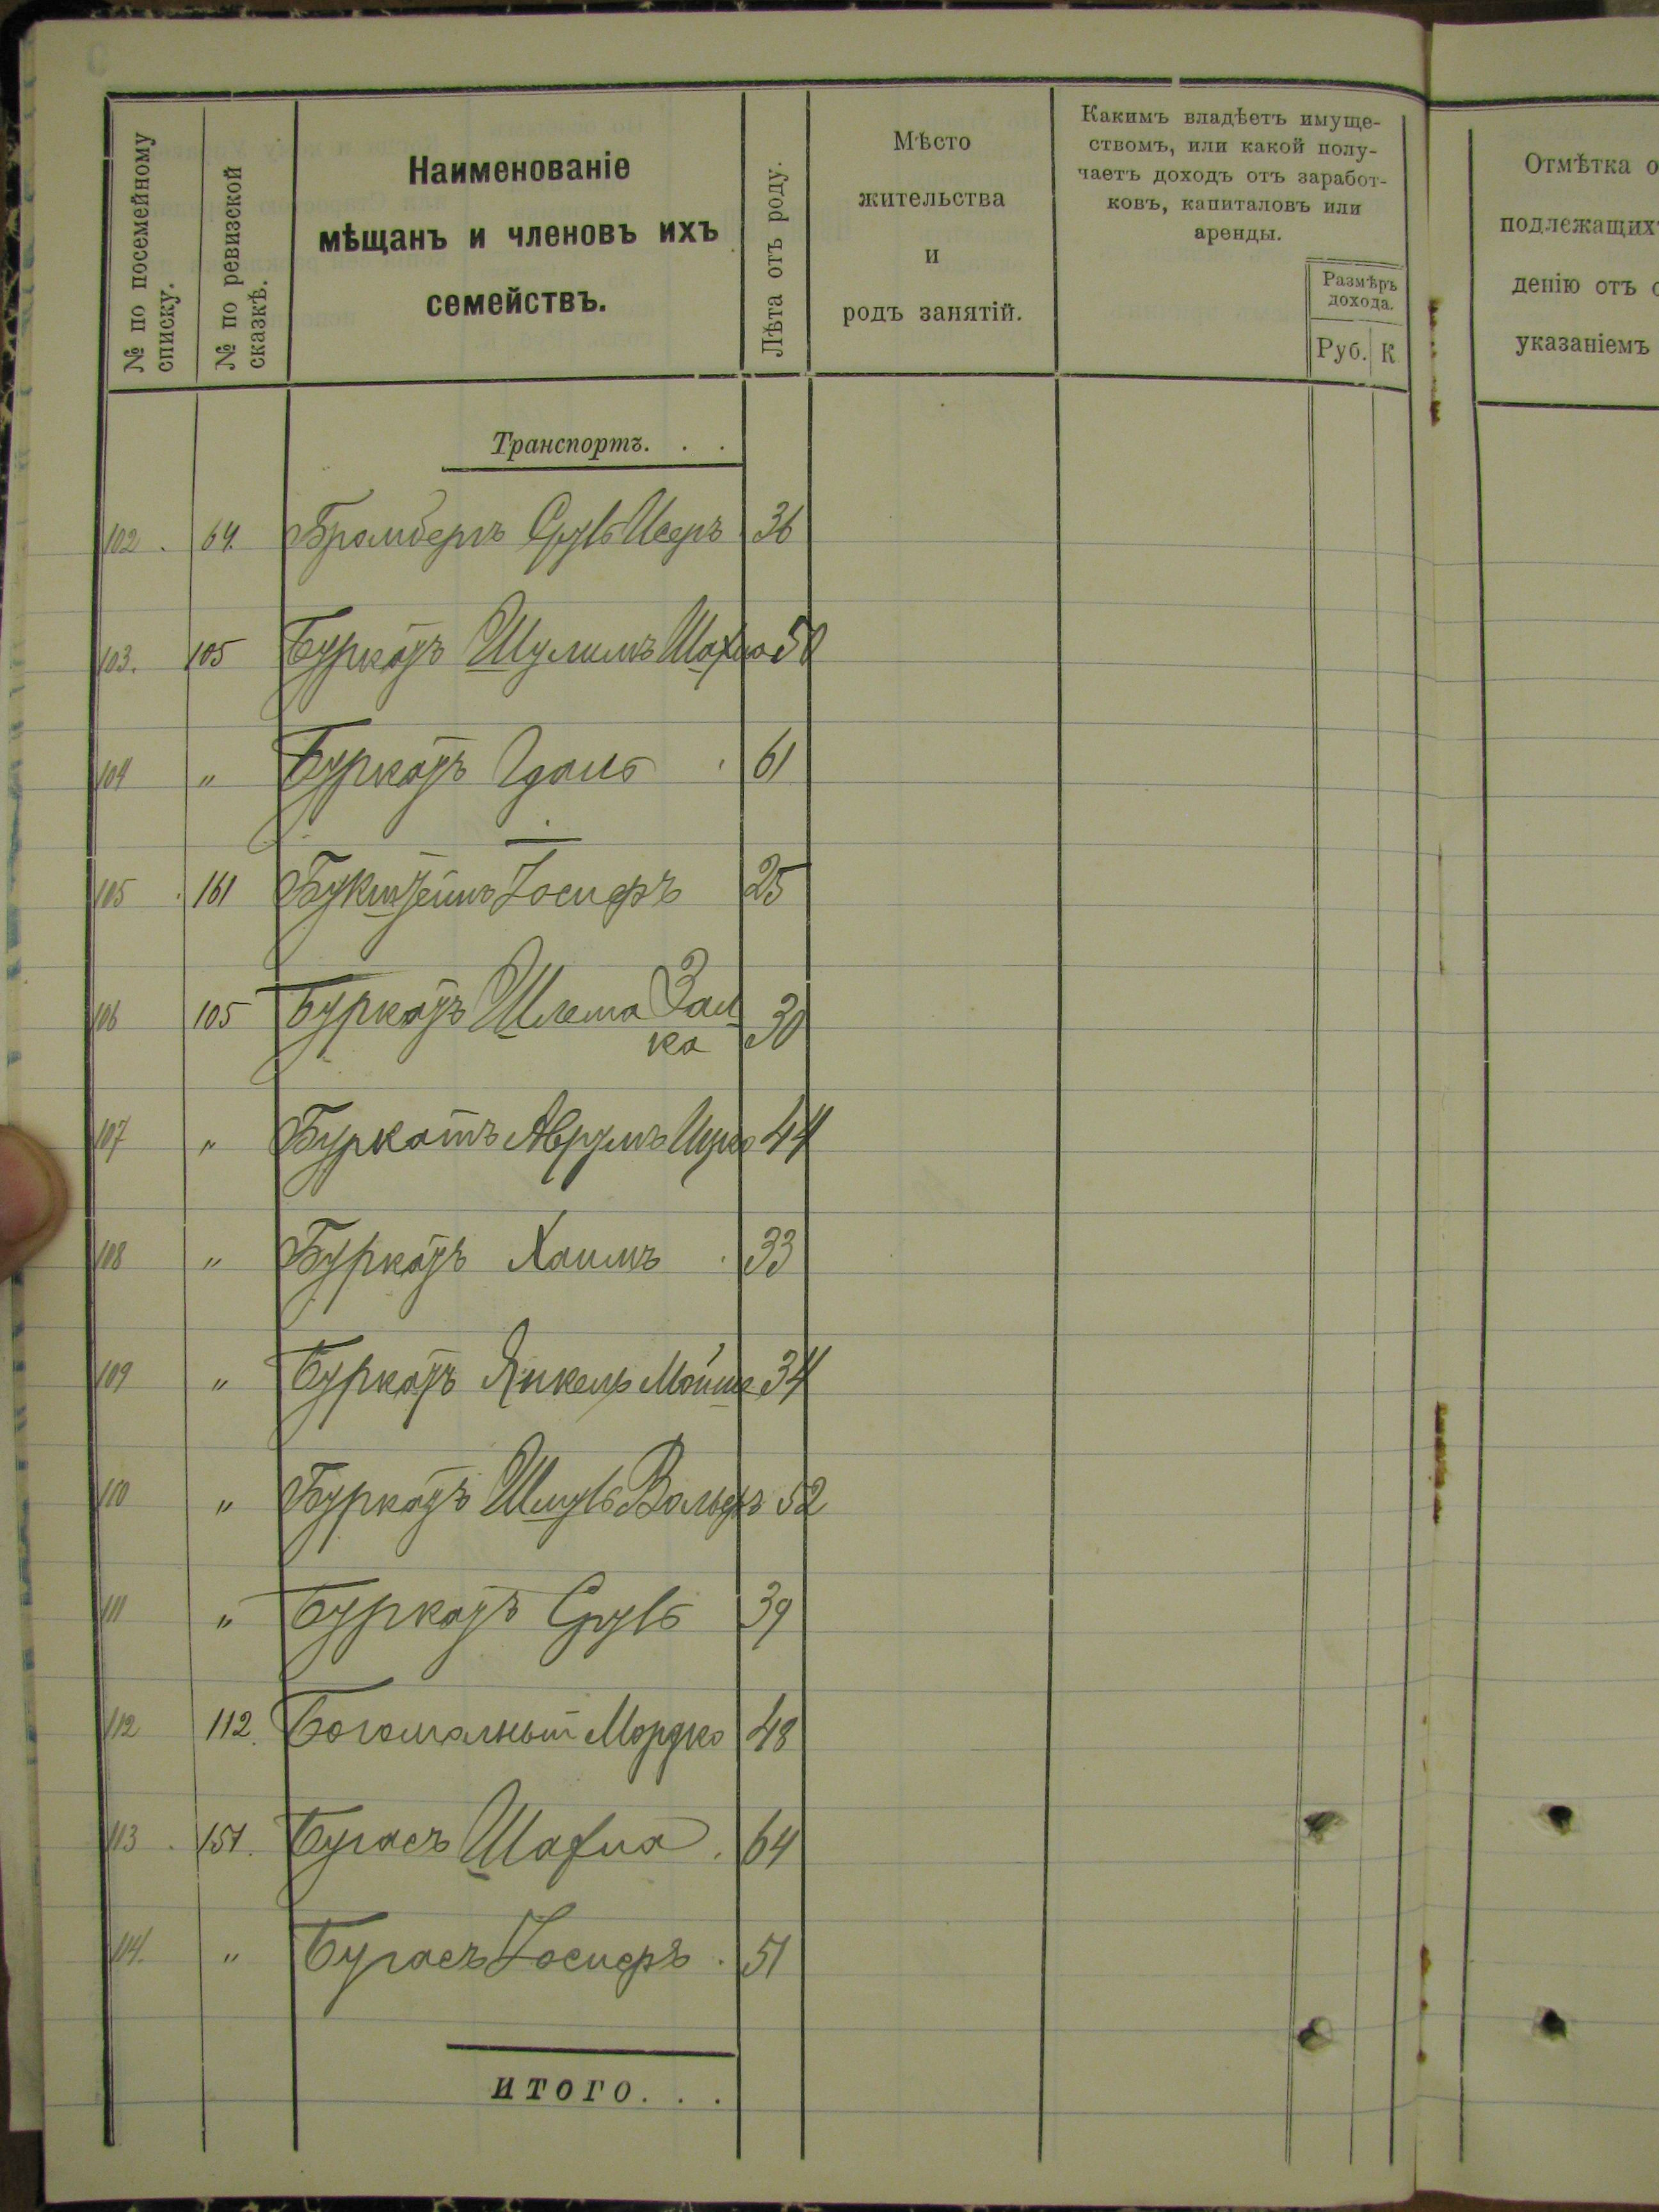 № по посемейному списку.
№ по ревизской сказкѣ.
Наименованіе
мѣщанъ и членовъ ихъ
семействъ.
Лѣта отъ роду.
Мѣсто
жительства
и
родъ занятій.
Какимъ владѣетъ имуще-
ствомъ, или какой полу-
чаетъ доходъ отъ заработ-
ковъ, капиталовъ или
аренды.
Размѣръ
дохода.
Руб. К
Отмѣтка о
подлежащихъ
денію отъ о
указаніемъ
Транспортъ. . .
102. 64. Бромбергъ Сруль Исеръ 36
103. 105 Буркатъ Шулимъ Шахна 50
104 " Буркатъ Гдаль 61
105 161 Букштейнъ Іосифъ 25
106 105 Буркатъ Шлема Зал
ка 30
107 " Буркатъ Аврумъ Ицко 44
108 " Буркатъ Хаимъ 33
109 " Буркатъ Янкель Мойше 34
110 " Буркатъ Шмуль Вольфъ 52
111 " Буркатъ Сруль 39
112 112. Богомольный Мордко 48
113. 151. Бугаеъ Шахна. 64
114. " Бугаеъ Іосифъ. 51
ИТОГО. . .